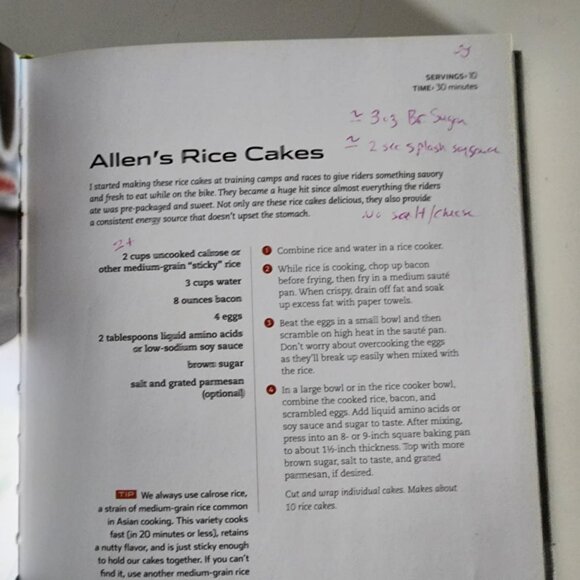 SERVINGS› 10
TIME› 30 minutes
≈ 3oz Br Sugar
≈ 2 sec splash soy sauce
Allen's Rice Cakes
I started making these rice cakes at training camps and races to give riders something savory
and fresh to eat while on the bike. They became a huge hit since almost everything the riders
ate was pre-packaged and sweet. Not only are these rice cakes delicious, they also provide
a consistent energy source that doesn't upset the stomach.
no salt/cheese
2 cups uncooked calrose or
other medium-grain "sticky" rice
3 cups water
8 ounces bacon
4 eggs
2 tablespoons liquid amino acids
or low-sodium soy sauce
brown sugar
salt and grated parmesan
(optional)
1 Combine rice and water in a rice cooker.
2 While rice is cooking, chop up bacon
before frying, then fry in a medium sauté
pan. When crispy, drain off fat and soak
up excess fat with paper towels.
3 Beat the eggs in a small bowl and then
scramble on high heat in the sauté pan.
Don't worry about overcooking the eggs
as they'll break up easily when mixed with
the rice.
4 In a large bowl or in the rice cooker bowl,
combine the cooked rice, bacon, and
scrambled eggs. Add liquid amino acids or
soy sauce and sugar to taste. After mixing,
press into an 8- or 9-inch square baking pan
to about 1½-inch thickness. Top with more
brown sugar, salt to taste, and grated
parmesan, if desired.
Cut and wrap individual cakes. Makes about
10 rice cakes.
TIP We always use calrose rice,
a strain of medium-grain rice common
in Asian cooking. This variety cooks
fast (in 20 minutes or less), retains
a nutty flavor, and is just sticky enough
to hold our cakes together. If you can't
find it, use another medium-grain rice